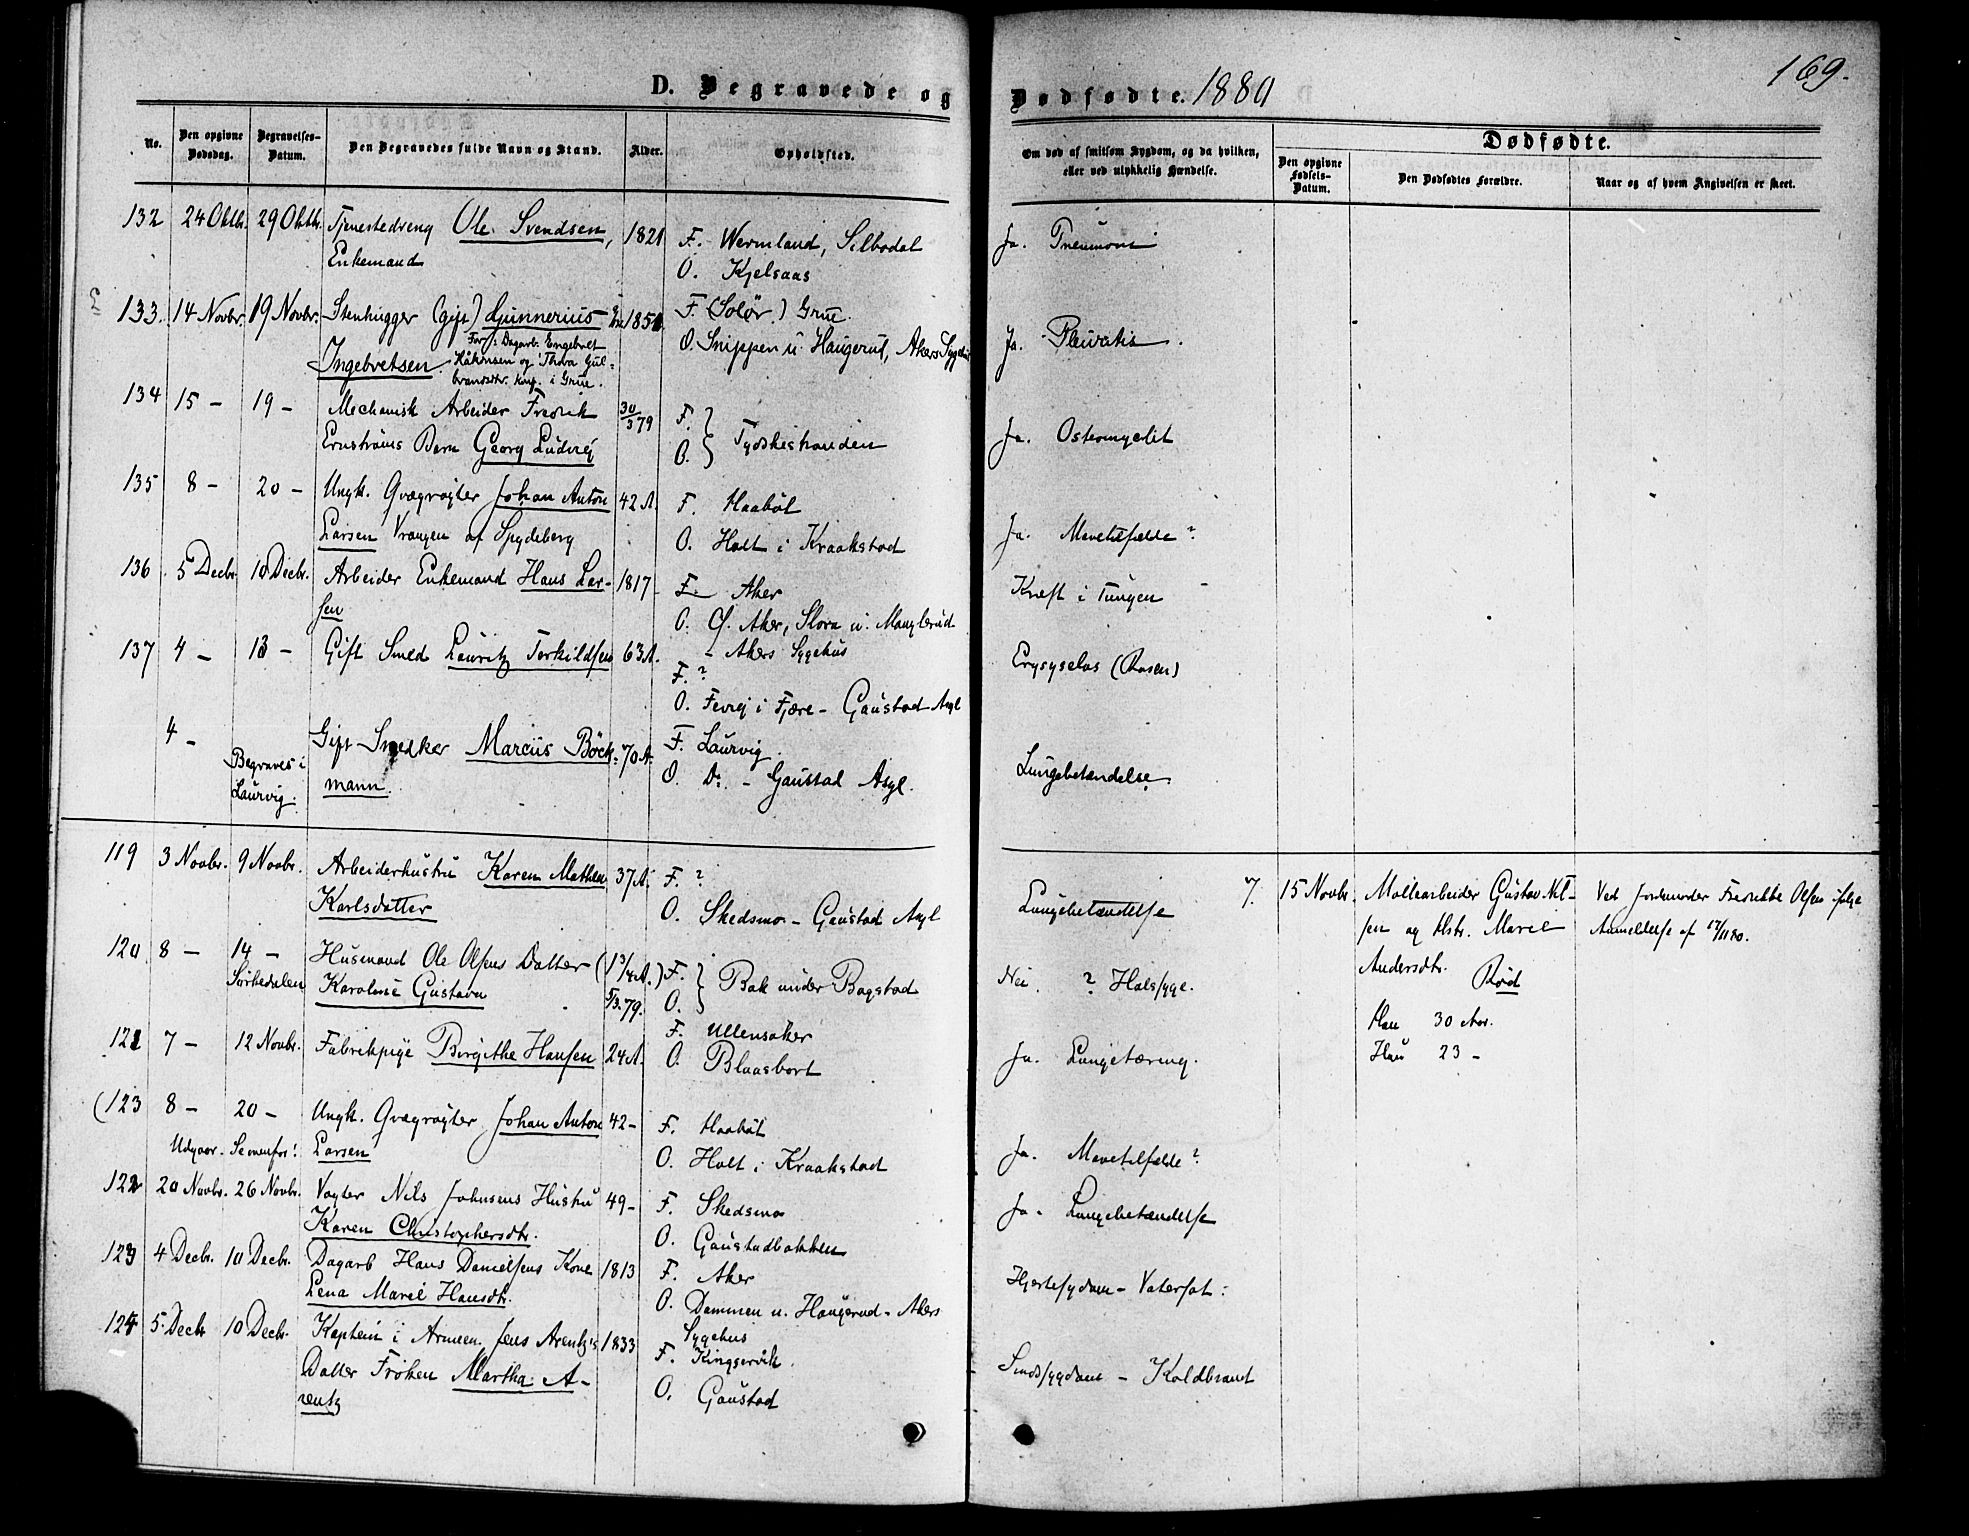 D. Begravede og
Dødfødte. 1880
169.
No.
Den opgivne Dødsdag.
Begravelses-Datum.
Den Begravedes fulde Navn og Stand.
Alder.
Opholdsted.
Om død af smitsom Sygdom, og da hvilken,
eller ved ulykkelig Hændelse.
Dødfødte.
Den opgivne Fødsels-Datum.
Den Dødfødtes Forældre.
Naar og af hvem Angivelsen er skeet.
132 24 Oktbr. 29 Oktbr. Tjenestedreng Ole Svendsen, 1821 F. Wermland, Silbodal Ja. Pneumoni
Enkemand O. Kjelsaas
133. 14 Novbr. 19 Novbr. Stenhugger (gift) Gunnerius 1851. F. (Solør.) Grue.
Ingebretsen. O. Snippen u. Haugerud, Akers Sygehus Ja. Pleuritis.
Forj: Dagarb. Engebret
Håkonsen og Thora Gul=
brandsdtr. i Grue.
134 15 – 19 – Mechanisk Arbeider Fredrik 30/3 79 F. }
Ernstrøms Barn Georg Ludvig O. } Tydskestranden Ja. Osteomyelit
135 8 – 20 – Ungk. Qvægrøgter Johan Anton 42 A. F. Haabøl
Larsen Vrangen af Spydeberg O. Holt i Kraakstad Ja. Mavetilfælde?
136 5 Decbr. 10 Decbr. Arbeider Enkemand Hans Lar- 1817 F. Aker Kræft i Tungen
sen O. Ø. Aker, Slora u. Manglerud
– Akers Sygehus
137 4 – 13 – Gift Smed Lauritz Torkildsen 63 A. F. ? Erysyselas (Rosen)
O. Fevig i Fjære – Gaustad Asyl
4 – Gift Snedker Marcus Böck- 70 A. F. Laurvig.
Begraves i
Laurvig.
mann. O. Do. – Gaustad Asyl. Lungebetændelse.
119 3 Novbr. 9 Novbr. Arbeiderhustru Karen Mathea 37 A. F. ?
Karlsdatter O. Skedsmo – Gaustad Asyl Lungebetændelse
7. 15 Novbr. Møllearbeider Gustav Nil-
sen og Hstr. Marie
Andersdtr. Röd
Han 30 Aar.
Hun 23 –
Ved Jordemoder Fredrikke Olsen ifølge
Anmeldelse af 17/11 80.
120 8 – 14 – Husmand Ole Olsens Datter (1 3/4 A.) F. }
Sørkedalen Karoline Gustava 5/3. 79. O. } Bak under Bogstad Nei. ? Halssyge.
121 7 – 12 Novbr. Fabrikpige Birgithe Hansen 24 A. F. Ullensaker
O. Blaasbort Ja. Lungetæring.
(123 8 – 20 – Ungk. Qvægrøgter Johan Anton 42 – F. Haabøl
Udgaar. Se ovenfor! Larsen O. Holt i Kraakstad Ja. Mavetilfælde?
122 20 Novbr. 26 Novbr. Vogter Nils Johnsens Hustru 49 – F. Skedsmo Ja. Lungebetændelse
Karen Christophersdtr. O. Gaustadbakken
123 4 Decbr. 10 Decbr. Dagarb Hans Danielsens Kone 1813 F. Aker Hjertesygdom – Vatersot:
Lena Marie Hansdtr. O. Dammen u. Haugerud – Akers
Sygehus
124 5 Decbr 10 Decbr. Kaptein i Armeen Jens Arentz's 1833 F. Kingservik.
Datter Frøken Martha A- O. Gaustad Sindssygdom – Koldbrand
rentz